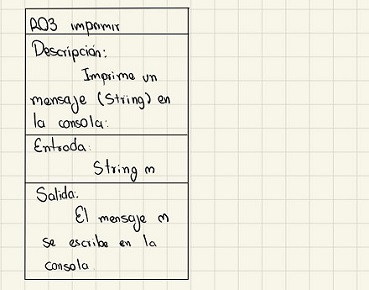 R03 imprimir
Descripción:
Imprime un
mensaje (String) en
la consola:
Entrada:
String m
Salida:
El mensaje m
se escribe en la
consola